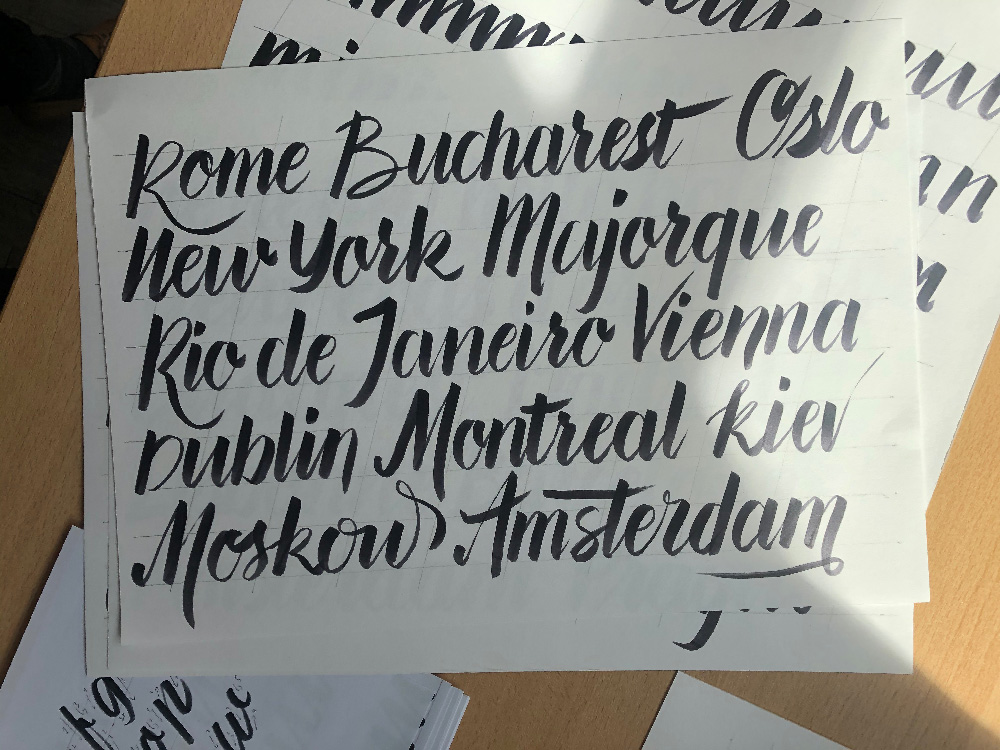 Rome Bucharest Oslo
New York Majorque
Rio de Janeiro Vienna
Dublin Montreal kiev
Moskow Amsterdam